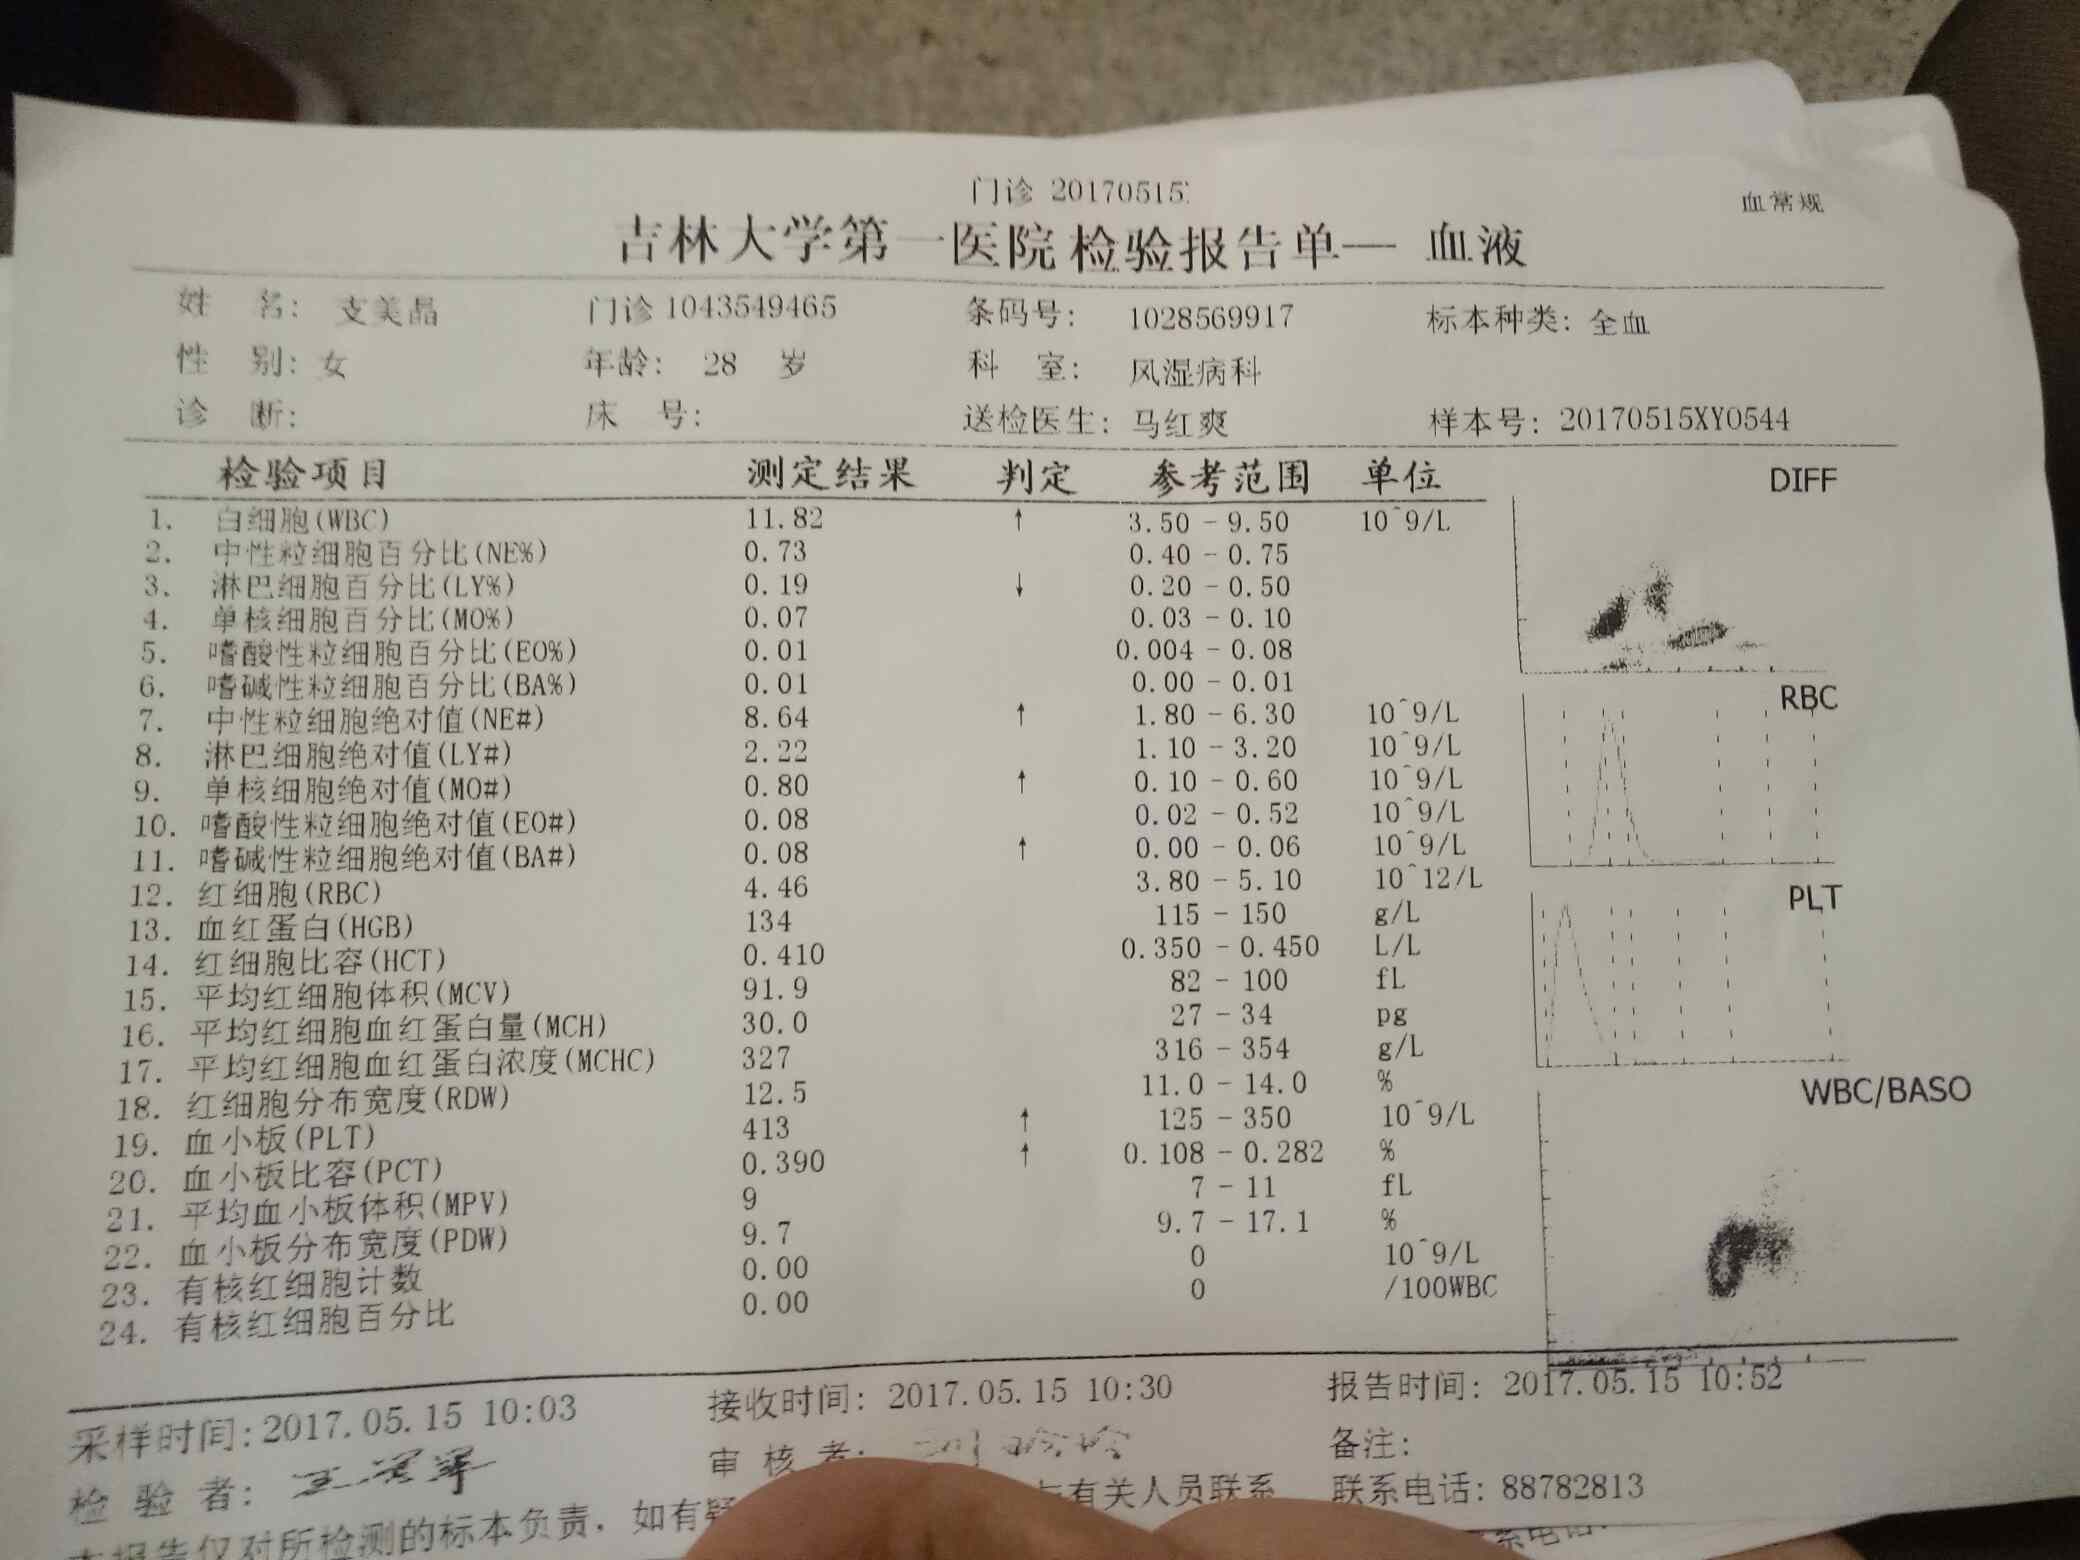 门诊 20170515
血常规
吉林大学第一医院检验报告单— 血液
姓 名: 支美晶 门诊 1043549465 条码号: 1028569917 标本种类: 全血
性 别: 女 年龄: 28 岁 科 室: 风湿病科
诊 断: 床 号: 送检医生: 马红爽 样本号: 20170515XY0544
检验项目 测定结果 判定 参考范围 单位
1. 白细胞(WBC) 11.82 ↑ 3.50 - 9.50 10^9/L
2. 中性粒细胞百分比(NE%) 0.73 0.40 - 0.75
3. 淋巴细胞百分比(LY%) 0.19 ↓ 0.20 - 0.50
4. 单核细胞百分比(MO%) 0.07 0.03 - 0.10
5. 嗜酸性粒细胞百分比(EO%) 0.01 0.004 - 0.08
6. 嗜碱性粒细胞百分比(BA%) 0.01 0.00 - 0.01
7. 中性粒细胞绝对值(NE#) 8.64 ↑ 1.80 - 6.30 10^9/L
8. 淋巴细胞绝对值(LY#) 2.22 1.10 - 3.20 10^9/L
9. 单核细胞绝对值(MO#) 0.80 ↑ 0.10 - 0.60 10^9/L
10. 嗜酸性粒细胞绝对值(EO#) 0.08 0.02 - 0.52 10^9/L
11. 嗜碱性粒细胞绝对值(BA#) 0.08 ↑ 0.00 - 0.06 10^9/L
12. 红细胞(RBC) 4.46 3.80 - 5.10 10^12/L
13. 血红蛋白(HGB) 134 115 - 150 g/L
14. 红细胞比容(HCT) 0.410 0.350 - 0.450 L/L
15. 平均红细胞体积(MCV) 91.9 82 - 100 fL
16. 平均红细胞血红蛋白量(MCH) 30.0 27 - 34 pg
17. 平均红细胞血红蛋白浓度(MCHC) 327 316 - 354 g/L
18. 红细胞分布宽度(RDW) 12.5 11.0 - 14.0 %
19. 血小板(PLT) 413 ↑ 125 - 350 10^9/L
20. 血小板比容(PCT) 0.390 ↑ 0.108 - 0.282 %
21. 平均血小板体积(MPV) 9 7 - 11 fL
22. 血小板分布宽度(PDW) 9.7 9.7 - 17.1 %
23. 有核红细胞计数 0.00 0 10^9/L
24. 有核红细胞百分比 0.00 0 /100WBC
DIFF
RBC
PLT
WBC/BASO
采样时间: 2017.05.15 10:03 接收时间: 2017.05.15 10:30 报告时间: 2017.05.15 10:52
检 验 者: 审 核 者: 备注:
本报告仅对所检测的标本负责. 如有疑 与有关人员联系 联系电话: 88782813
系电话: